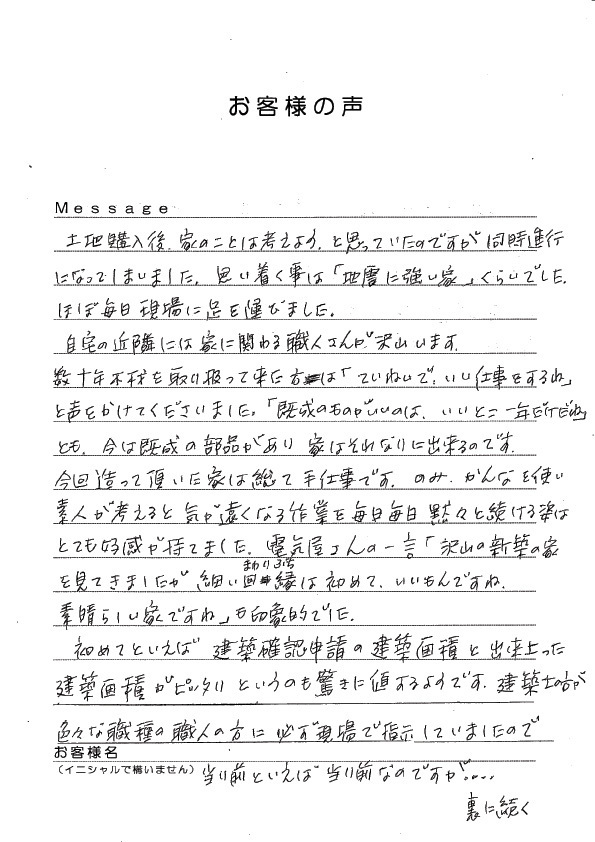 お客様の声
Message
土地購入後、家のことは考えよう、と思っていたのですが同時進行
になってしまいました。思い着く事は「地震に強い家」くらいでした。
ほぼ毎日現場に足を運びました。
自宅の近隣には家に関わる職人さんが沢山います。
数十年木材を取り扱って来た方は「ていねいで、いい仕事をするね」
と声をかけてくださいました。「既成のものがいいのは、いいとこ一年だけだね」
とも、今は既成の部品があり家はそれなりに出来るのです。
今回造って頂いた家は総て手仕事です。のみ、かんなを使い
素人が考えると気が遠くなる作業を毎日毎日黙々と続ける姿は
とても好感が持てました。電気屋さんの一言「沢山の新築の家
まわりぶち
を見てきましたが細い回縁は初めて、いいもんですね、
素晴らしい家ですね」も印象的でした。
初めてといえば建築確認申請の建築面積と出来上った
建築面積がピッタリというのも驚きに値するようです。建築士の方が
色々な職種の職人の方に必ず現場で指示していましたので
お客様名
(イニシャルで構いません) 当り前といえば当り前なのですが.....
裏に続く